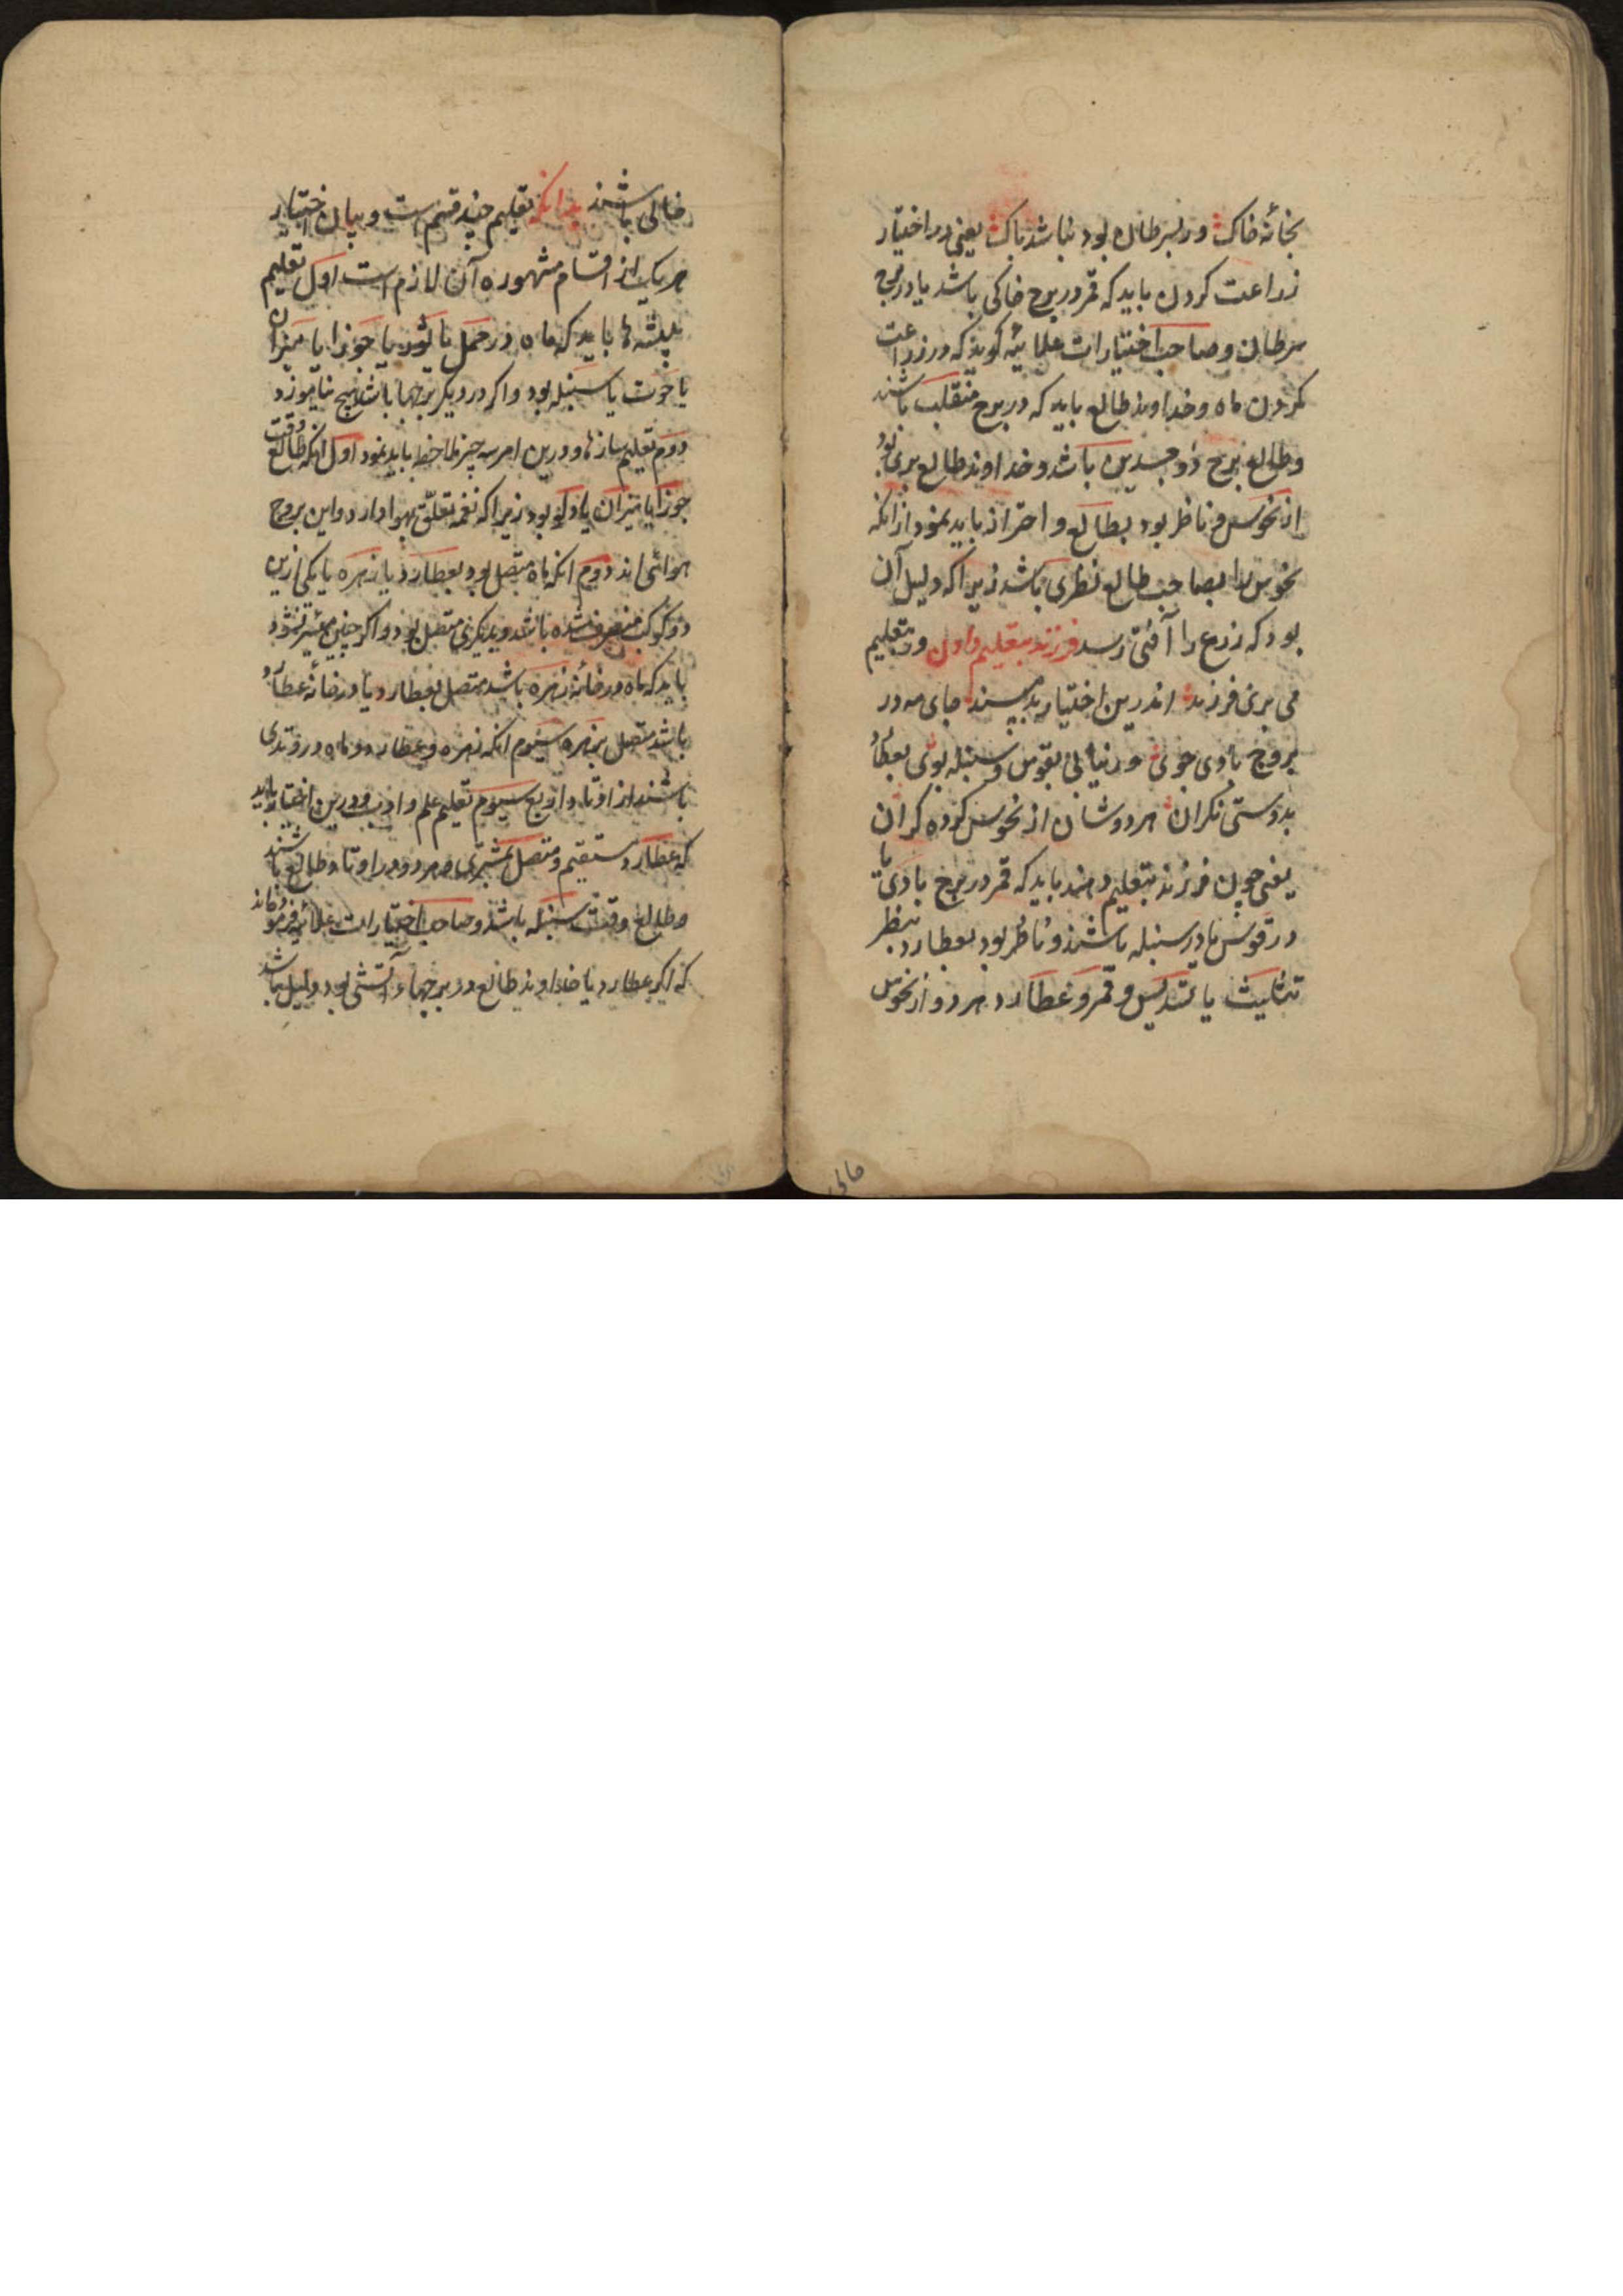 بخانه خاک ور بسرطان بود نباشد باک یعنی در اختیار
زراعت کردن باید که قمر در برج خاکی باشد یا در برج
سرطان و صاحب اختیارات علائیه گوید که در زراعت
کردن ماه و خداوند طالع باید که در برج منقلب باشند
و طالع برج ذو جسدین باشد و خداوند طالع بری بود
از نحوس و ناظر بود بطالع و احتراز باید نمود از انکه
نحوس را بصاحب طالع نظری باشد زیرا که دلیل آن
بود که زرع را آفتی رسد فرزند بتعلیم دادن وقت تعلیم
می بری فرزند اندرین اختیار به پسند جای مه در
بروج بادی جوی ور نیابی بقوس و سنبله بوی بعطارد
بدوستی نگران هر دوشان از نحوس کرده کران
یعنی چون فرزند بتعلیم دهند باید که قمر در برج بادی یا
در قوس یا در سنبله باشد و ناظر بود بعطارد بنظر
تثلیث یا تسدیس و قمر و عطارد هر دو از نحوس
خالی
خالی باشند بدانکه تعلیم چند قسم است و بیان اختیار
هر یک از اقسام مشهوره آن لازم است اول تعلیم
پیشه ها باید که ماه در حمل یا ثور یا جوزا یا میزان
یا حوت یا سنبله بود و اگر در دیگر برجها باشد هیچ نیاموزد
دوم تعلیم سازها و درین امر سه چیز ملاحظه باید نمود اول انکه طالع وقت
جوزا یا میزان یا دلو بود زیرا که نغمه تعلق بهوا دارد و این بروج
هوائی اند دوم انکه ماه متصل بود بعطارد یا زهره یا یکی ازین
دو کوکب منصرف شده باشد و بدیگری متصل بود و اگر چنین میسر نشود
باید که ماه در خانه زهره باشد متصل بعطارد یا در خانه عطارد
باشد متصل بزهره سیوم انکه زهره و عطارد و ماه در وتدی
باشند از اوتاد اربع سیوم تعلیم علم و ادب و درین اختیار باید
که عطارد مستقیم و متصل بمشتری و هر دو در اوتاد طالع باشند
و طالع وقت سنبله باشد و صاحب اختیارات علائیه فرموده اند
که اگر عطارد یا خداوند طالع در برجهاء آتشی بود دلیل باشد